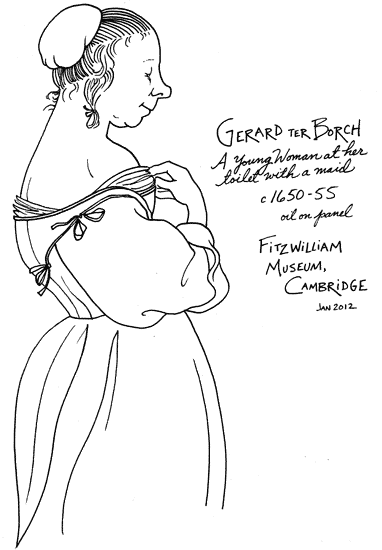 GERARD TER BORCH
A Young Woman at her
toilet with a maid
c 1650-55
oil on panel
FITZWILLIAM
MUSEUM,
CAMBRIDGE
JAN 2012